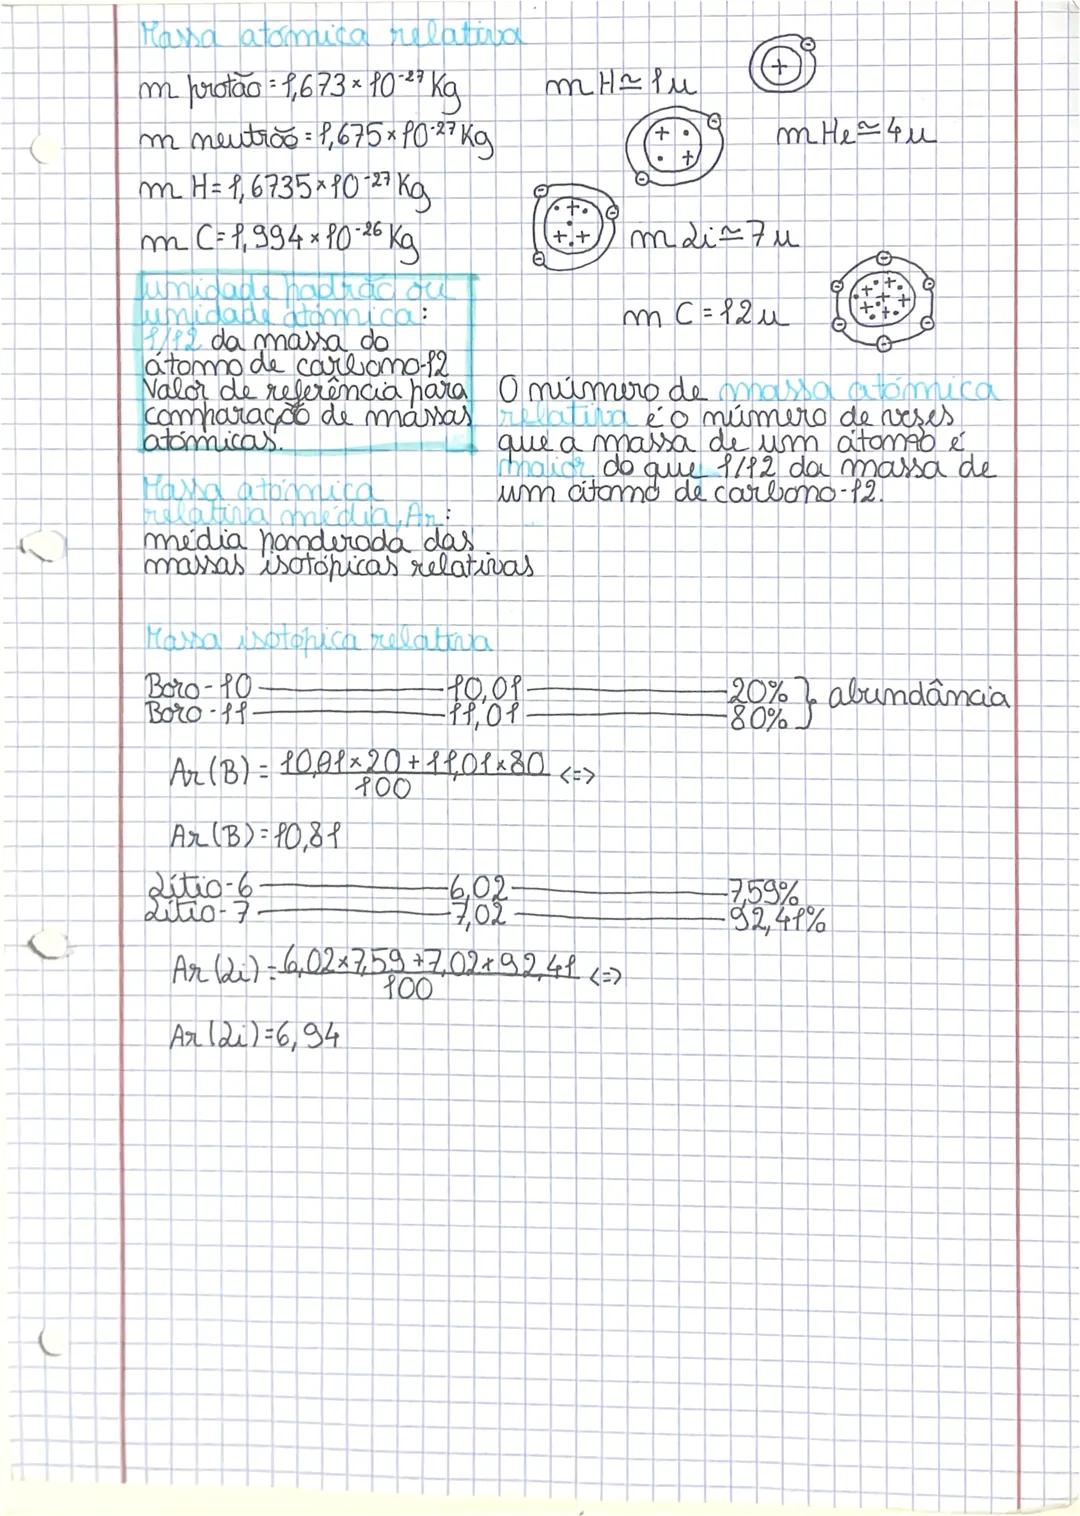 Massa atómica relativa
m protão = 1,673 × 10⁻²⁷ Kg
m H ≃ 1u
m neutrão = 1,675 × 10⁻²⁷ Kg
m He ≃ 4u
m H = 1,6735 × 10⁻²⁷ Kg
m C = 1,994 × 10⁻²⁶ Kg
m Li ≃ 7u
m C = 12u
unidade padrão ou
unidade atómica:
1/12 da massa do
átomo de carbono-12
Valor de referência para
comparação de massas
atómicas.
O número de massa atómica
relativa é o número de vezes
que a massa de um átomo é
maior do que 1/12 da massa de
um átomo de carbono-12.
Massa atómica
relativa média, Ar:
média ponderada das
massas isotópicas relativas
Massa isotópica relativa
Boro-10 10,01 20% } abundância
Boro-11 11,01 80%
Ar(B) = 10,01×20 + 11,01×80 <=>
100
Ar(B) = 10,81
Lítio-6 6,02 7,59%
Lítio-7 7,02 92,41%
Ar(Li) = 6,02×7,59 + 7,02×92,41 <=>
100
Ar(Li) = 6,94